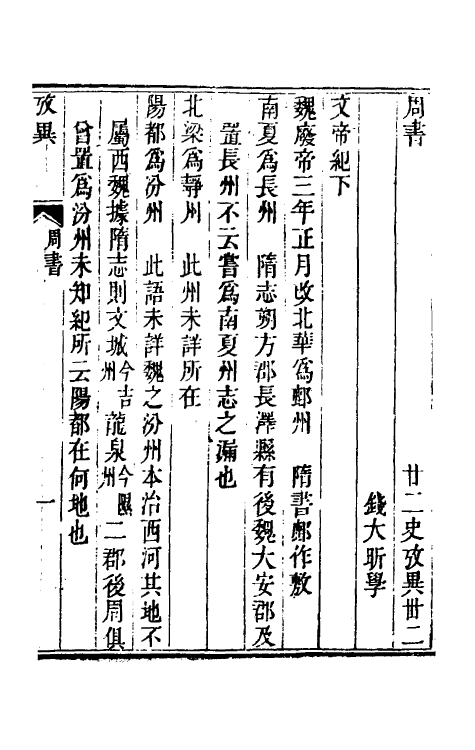 周書　　　　　　　廿二史攷異卅二
錢大昕學
文帝紀下
魏廢帝三年正月改北華爲鄜州　隋書鄜作敷
南夏爲長州　隋志朔方郡長澤縣有後魏大安郡及
置長州不云嘗爲南夏州志之漏也
北梁爲靜州　此州未詳所在
陽都爲汾州　此語未詳魏之汾州本治西河其地不
屬西魏據隋志則文城今吉州龍泉今隰州二郡後周俱
曾置爲汾州未知紀所云陽都在何地也
攷異　周書　一